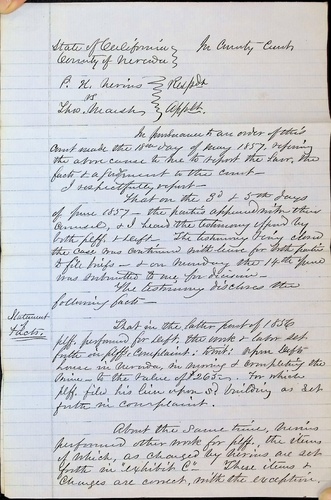 State of California } In County Court
County of Nevada }
P. H. Nevins } Respdt
vs
Thos. Marsh } Applt.
In pursuance to an order of this
Court made the 18th day of May 1857, refering
the above cause to me to report the law, the
facts & a judgment to this court—
I respectfully report—
That on the 3d & 5th days
of June 1857— the parties appeared with their
Counsel, & I heard the testimony offered by
both plff. & deft— The testimony being closed
the case was continued with leave for both parties
to file briefs— & on Monday the inst the same
was submitted to me for decision—
The testimony discloses the
following facts—
Statement
of
Facts.
That in the latter part of 1856
plff. performed for deft. the work & labor set
forth in plffs. complaint. towit: upon defts
house in Nevada, in moving & completing the
same— to the value of $265— for which
plff. filed his lien upon sd building as set
forth in complaint.
About the same time, Nevins
performed other work for plff. the items
of which, as charged by Nevins are set
forth in "exhibit C" These items &
Charges are correct, with the exception,